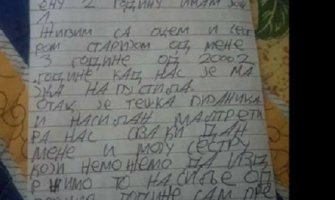 ЕНУ 2 ГОДИНУ ИМАМ
1
ЖИВИМ СА ОЦЕМ И СЕСТ
РОМ СТАРИЈОМ ОД МЕНЕ
3 ГОДИНЕ ОД 2002
ГОДИНЕ КАД НАС ЈЕ МА
ЈКА НАПУСТИЛА
ОТАЦ ЈЕ ТЕШКА ПИЈАНИЦА
И НАСИЛАН МАЛТРЕТИ
РА НАС СВАКИ ДАН
МЕНЕ И МОЈУ СЕСТРУ
КОЈИ НЕМОЖЕМО ДА ИЗД
РЖИМО ТО НАСИЉЕ ОД
ГОДИНЕ САМ ПРЕ